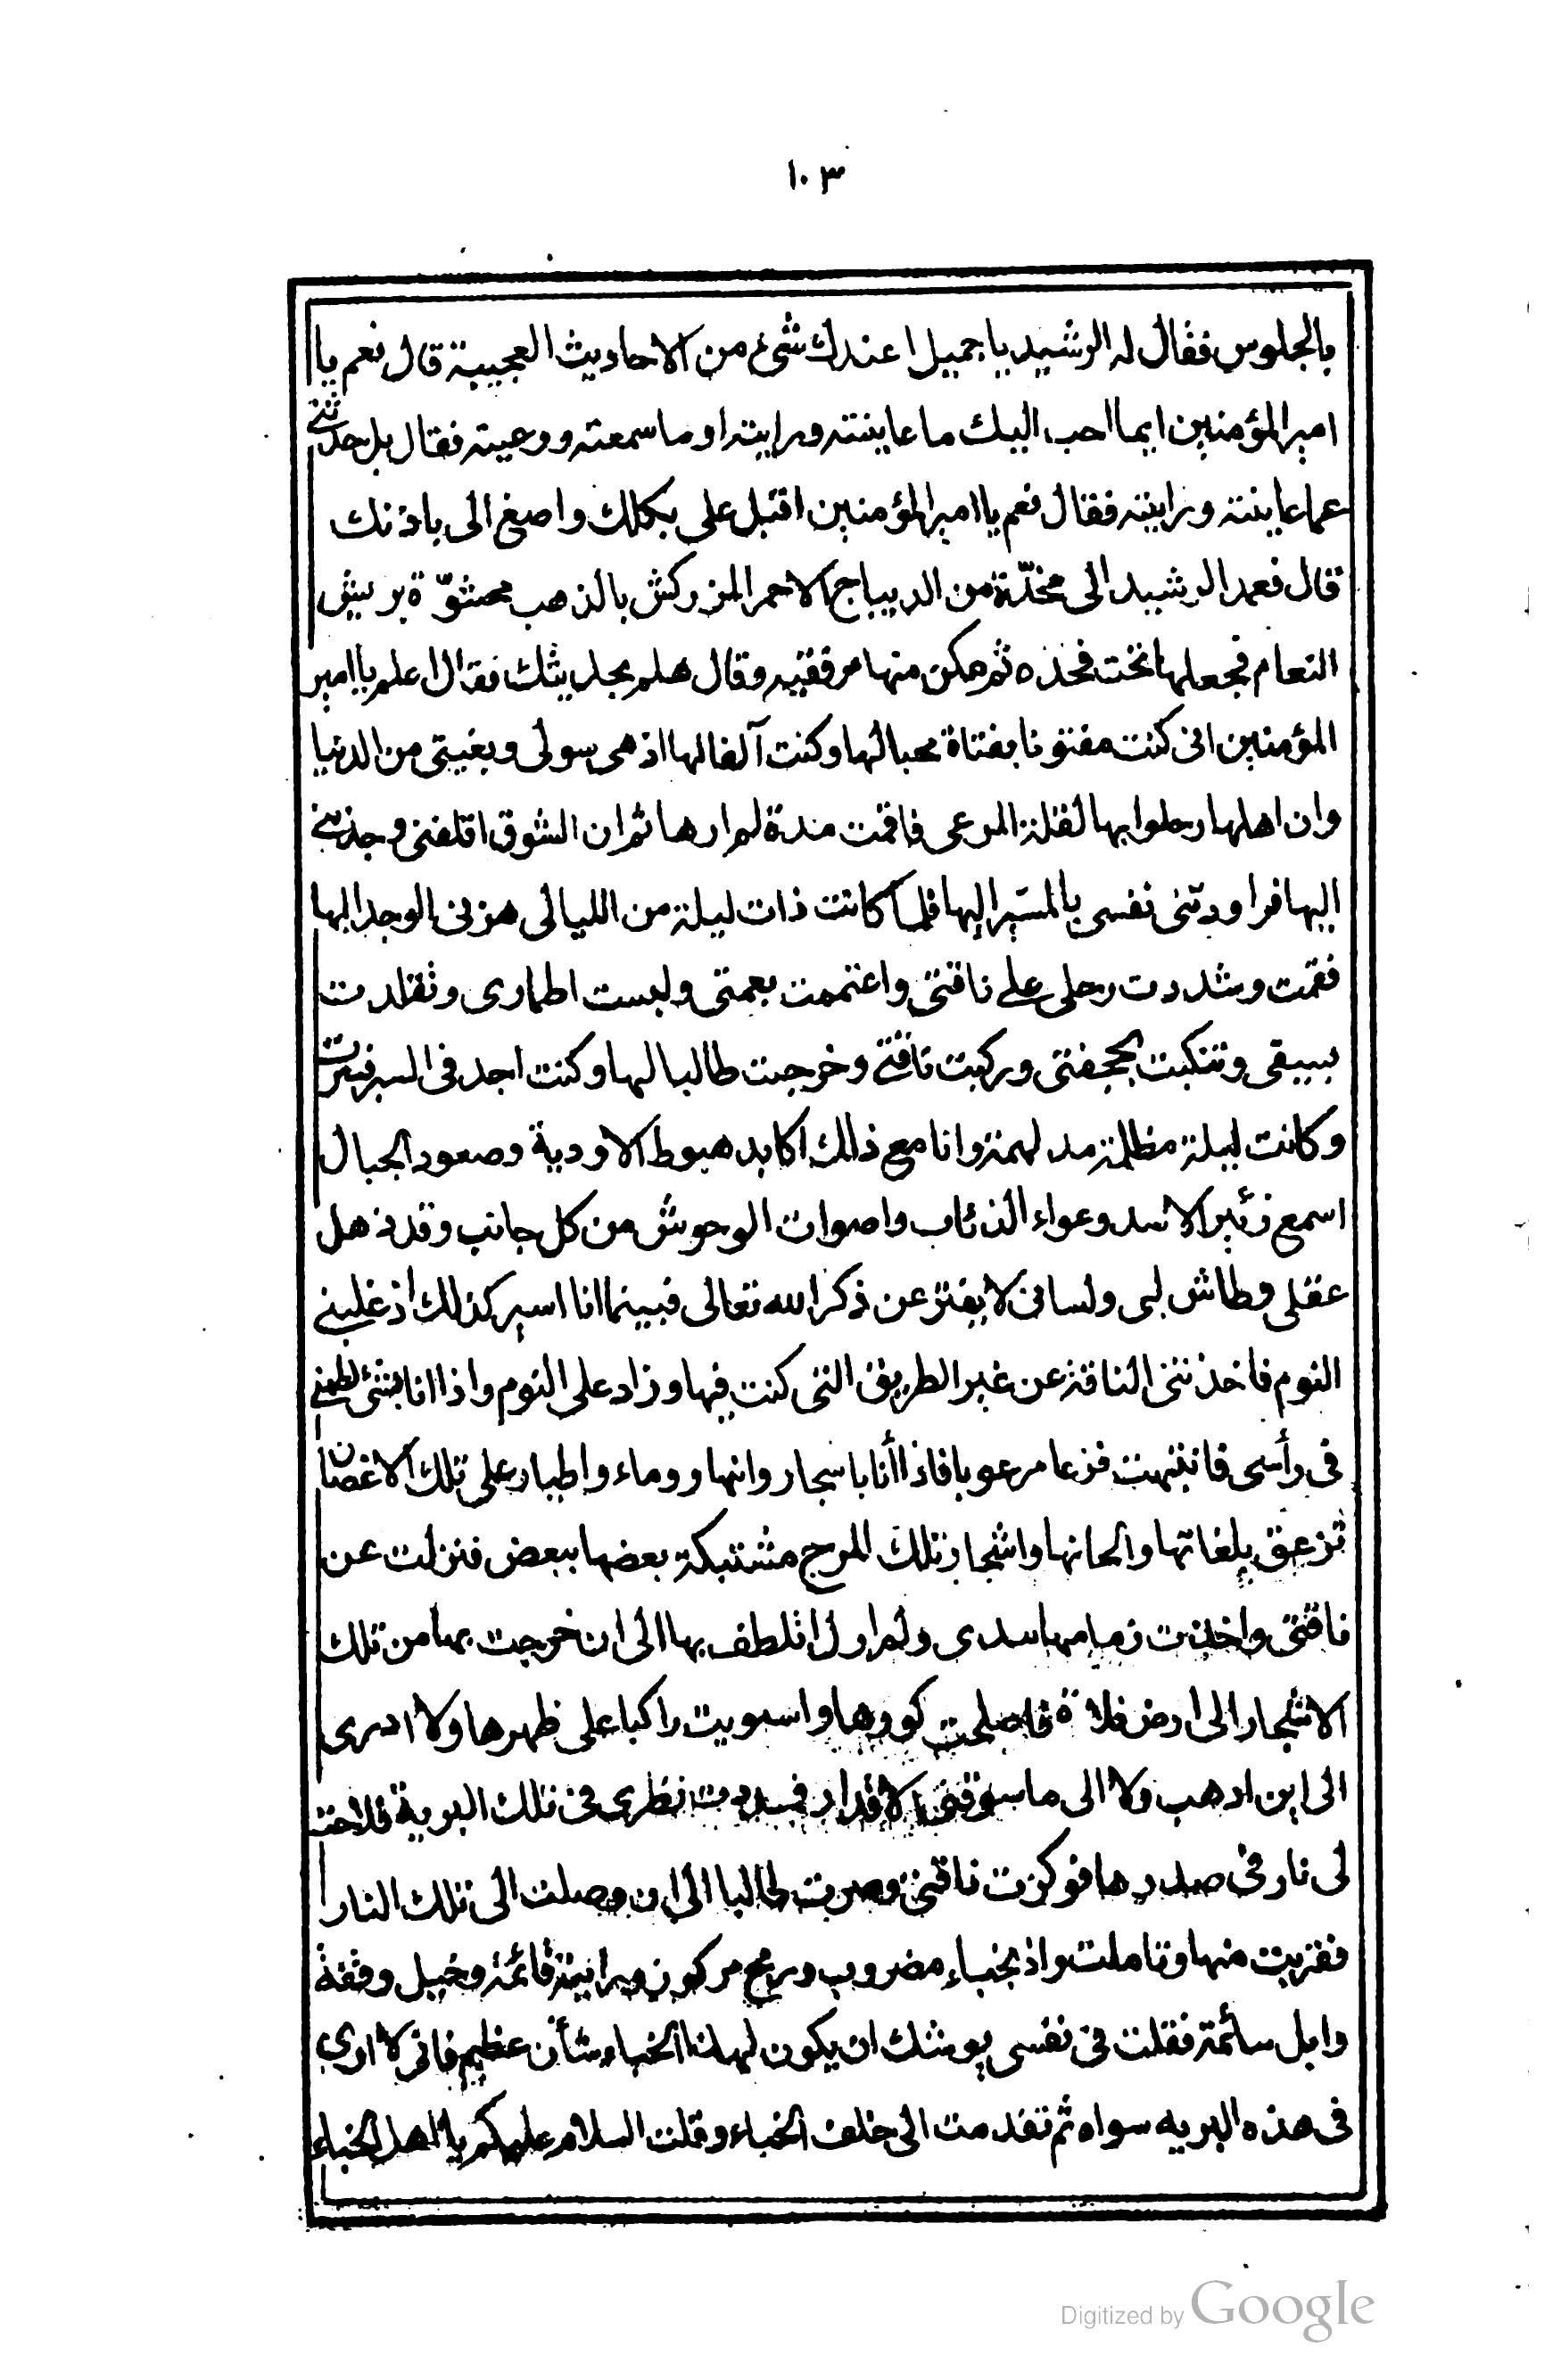 ١٠٣
بالجلوس فقال له الرشيد يا جميل اعندك شئ من الاحاديث العجيبة قال نعم يا
امير المؤمنين ايما احب اليك ما عاينته ورايته او ما سمعته ووعيته فقال بل حدثني
عما عاينته ورايته فقال نعم يا امير المؤمنين اقبل على بكلك واصغ الى باذنك
قال فعمد الرشيد الى مخدّة من الديباج الاحمر المزركش بالذهب محشوّة بريش
النعام فجعلها تحت فخذه ثم مكن منها مرفقيه وقال هلم بحديثك فقال اعلم يا امير
المؤمنين انى كنت مفتونا بفتاة محبا لها وكنت آلفا لها اذ هى سولى وبغيتى من الدنيا
وان اهلها رحلوا بها لقلة المرعى فاقمت مدة لم ارها ثم ان الشوق اقلقنى وجذبني
اليها فراودتنى نفسى بالمسير اليها فلما كانت ذات ليلة من الليالى هزنى الوجد اليها
فقمت وشددت رحلى على ناقتى واعتممت بعمتى ولبست اطمارى وتقلدت
بسيفى وتنكبت بحجفتى وركبت ناقتى وخرجت طالبا لها وكنت اجد فى السير فسرت
وكانت ليلة مظلمة مدلهمة وانا مع ذلك اكابد هبوط الاودية وصعود الجبال
اسمع زئير الاسد وعواء الذئاب واصوات الوحوش من كل جانب وقد ذهل
عقلى وطاش لبى ولسانى لا يفتر عن ذكر الله تعالى فبينما انا اسير كذلك اذ غلبنى
النوم فاخذتنى الناقة عن غير الطريق التى كنت فيها وزاد على النوم واذا انا بشئ لطمنى
فى رأسى فانتبهت فزعا مرعوبا فاذا أنا باشجار وانهار وماء واطيار على تلك الاغصان
تزعق بلغاتها والحانها واشجار تلك المرج مشتبكة بعضها ببعض فنزلت عن
ناقتى واخذت زمامها بيدى ولم ازل اتلطف بها الى ان خرجت بها من تلك
الاشجار الى ارض فلاة فاصلحت كورها واستويت راكبا على ظهرها ولا ادرى
الى اين اذهب ولا الى ما تسوقنى الاقدار فمددت نظرى فى تلك البرية فلاحت
لى نار فى صدرها فوكزت ناقتى وسرت طالبا الى ان وصلت الى تلك النار
فقربت منها وتاملت واذ بخباء مضروب ورمح مركوز وراية قائمة وخيل وقفة
وابل سائمة فقلت فى نفسى يوشك ان يكون لهذا الخباء شأن عظيم فانى لا ارى
فى هذه البريه سواه ثم تقدمت الى خلف الخباء وقلت السلام عليكم يا اهل الخباء
Digitized by Google